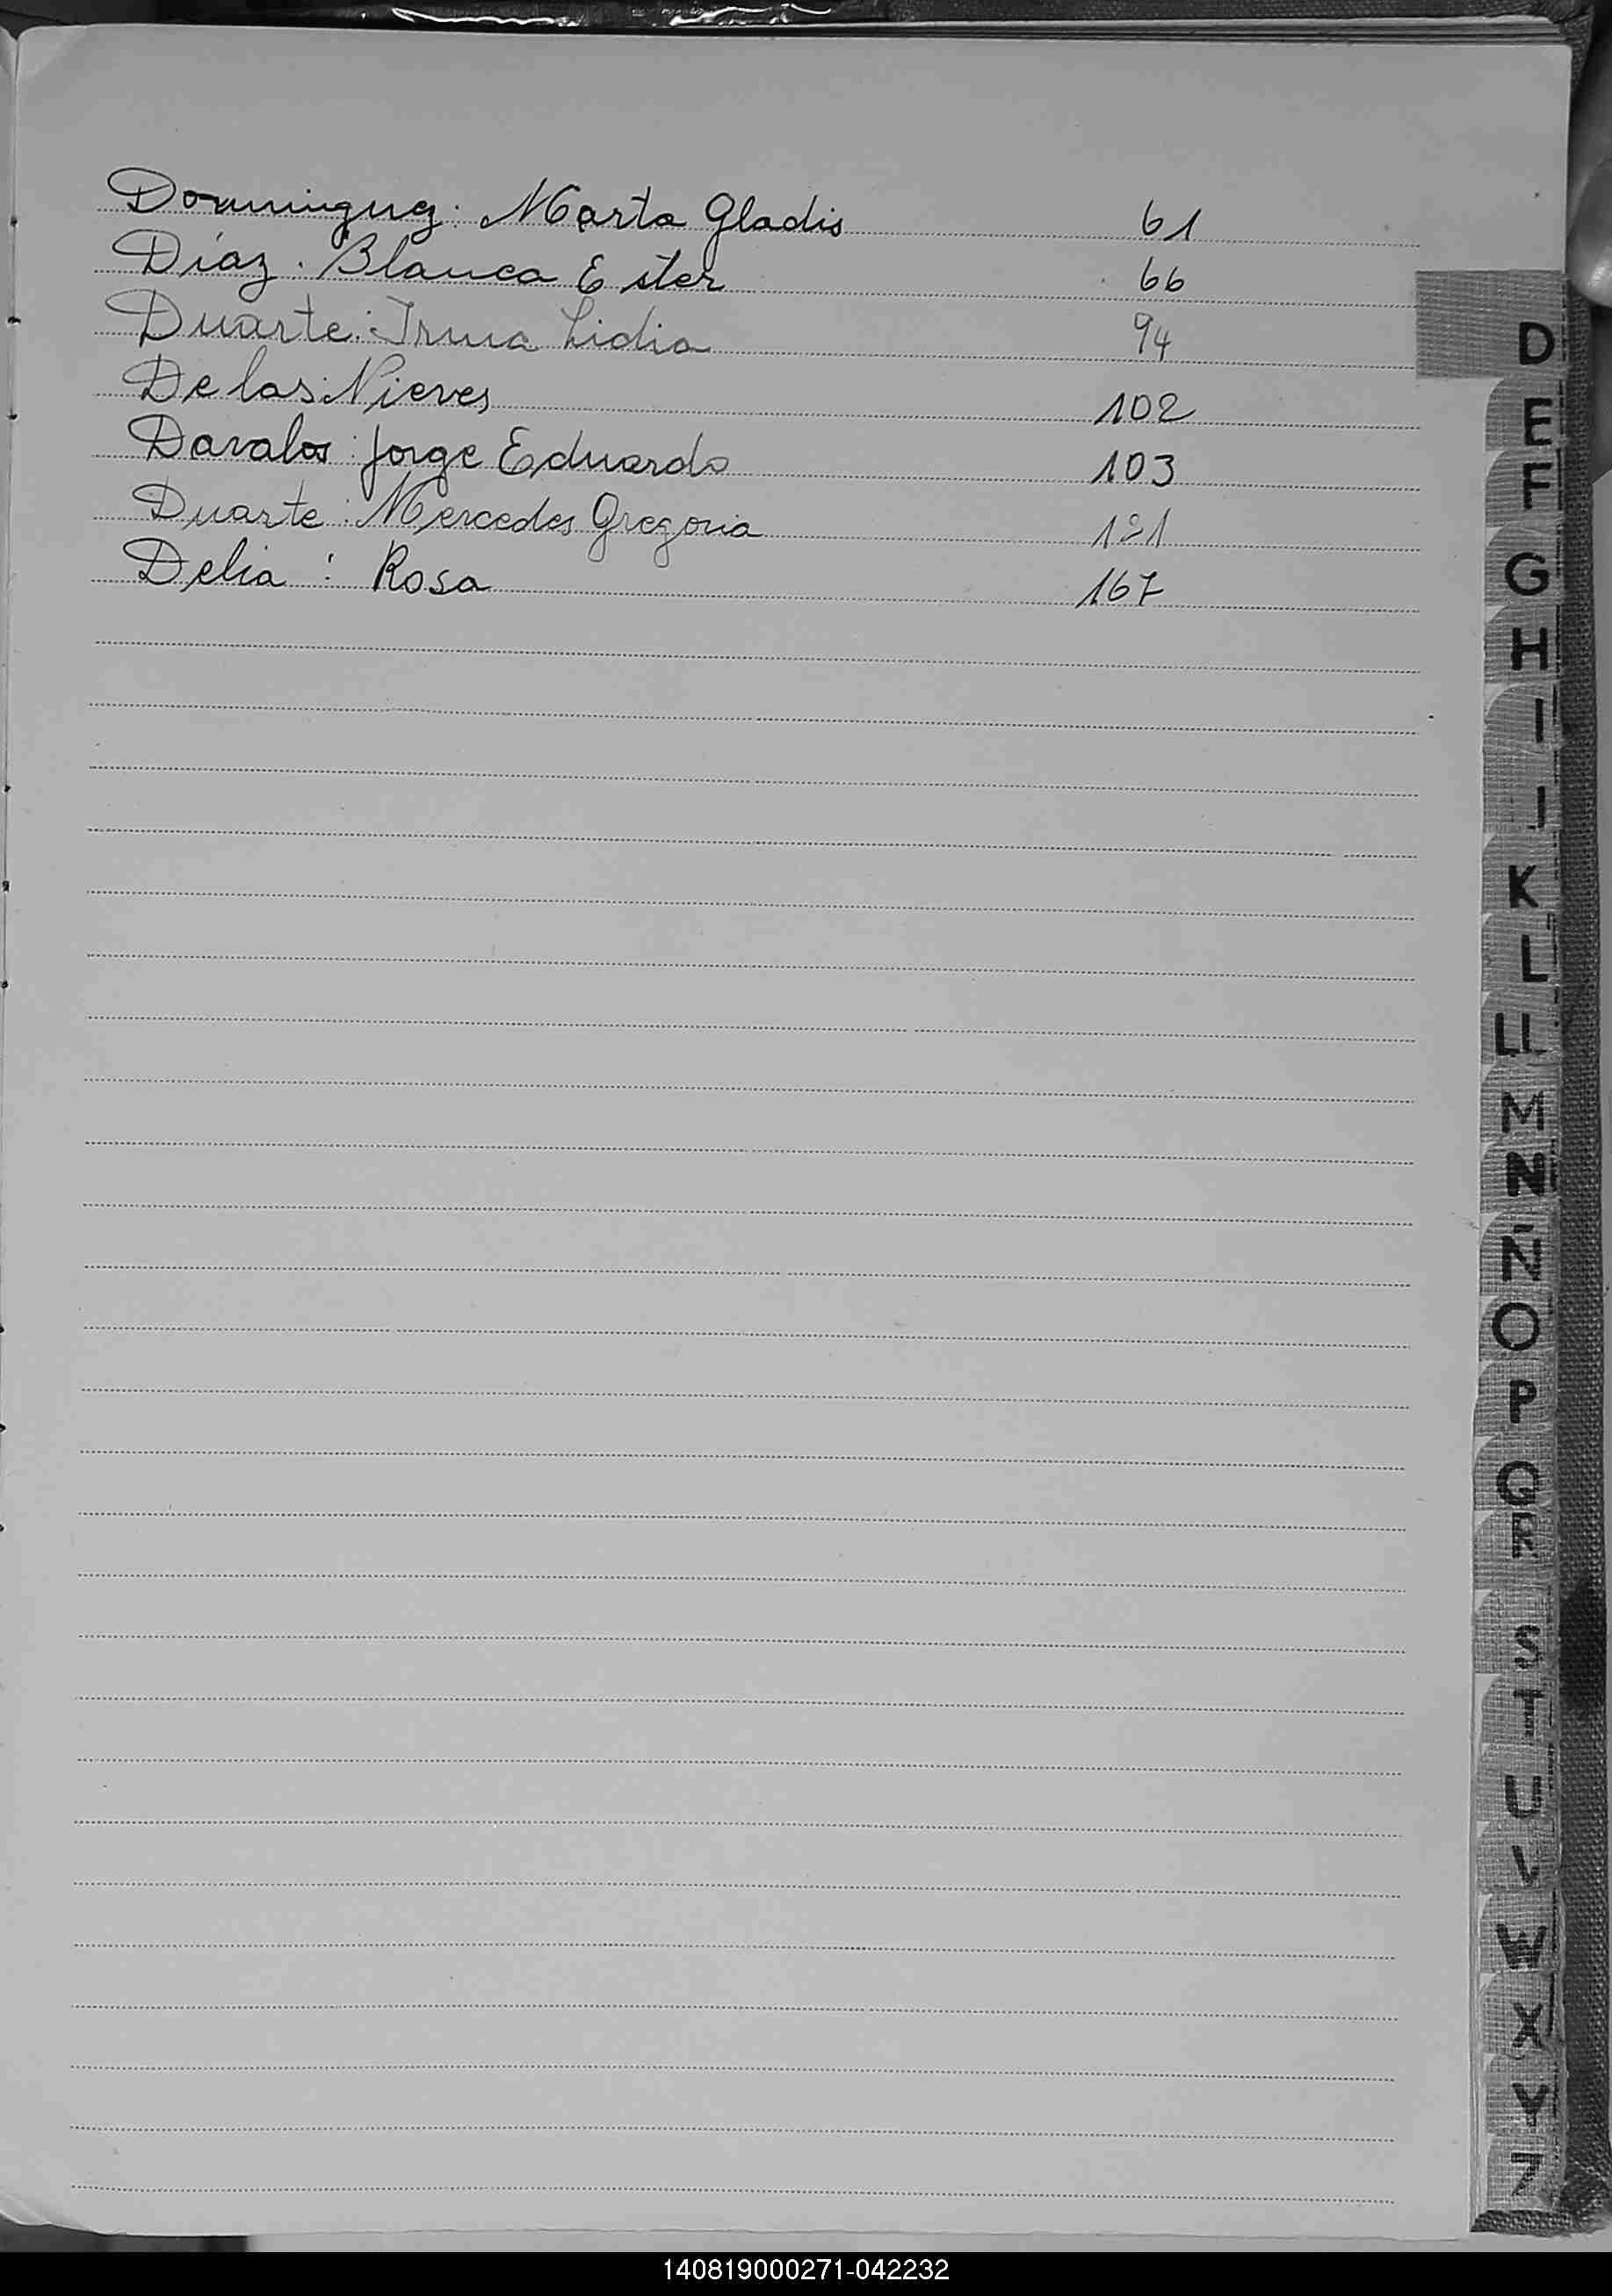 Dominguez. Marta Gladis 61
Díaz. Blanca Ester 66
Duarte: Irma Lidia 94
De las Nieves 102
Davalos: Jorge Eduardo 103
Duarte: Mercedes Gregoria 121
Delia: Rosa 167
D
E
F
G
H
I
J
K
L
LL
M
N
Ñ
O
P
Q
R
S
T
U
V
W
X
Y
Z
140819000271-042232